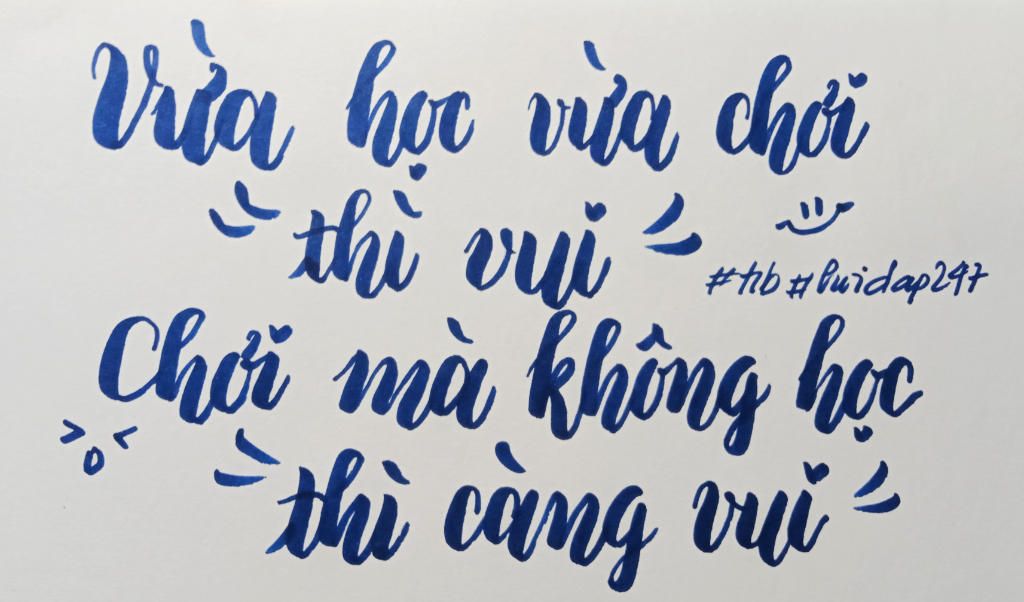 Vừa học vừa chơi
thì vui
#hb #buidap247
Chơi mà không học
thì càng vui